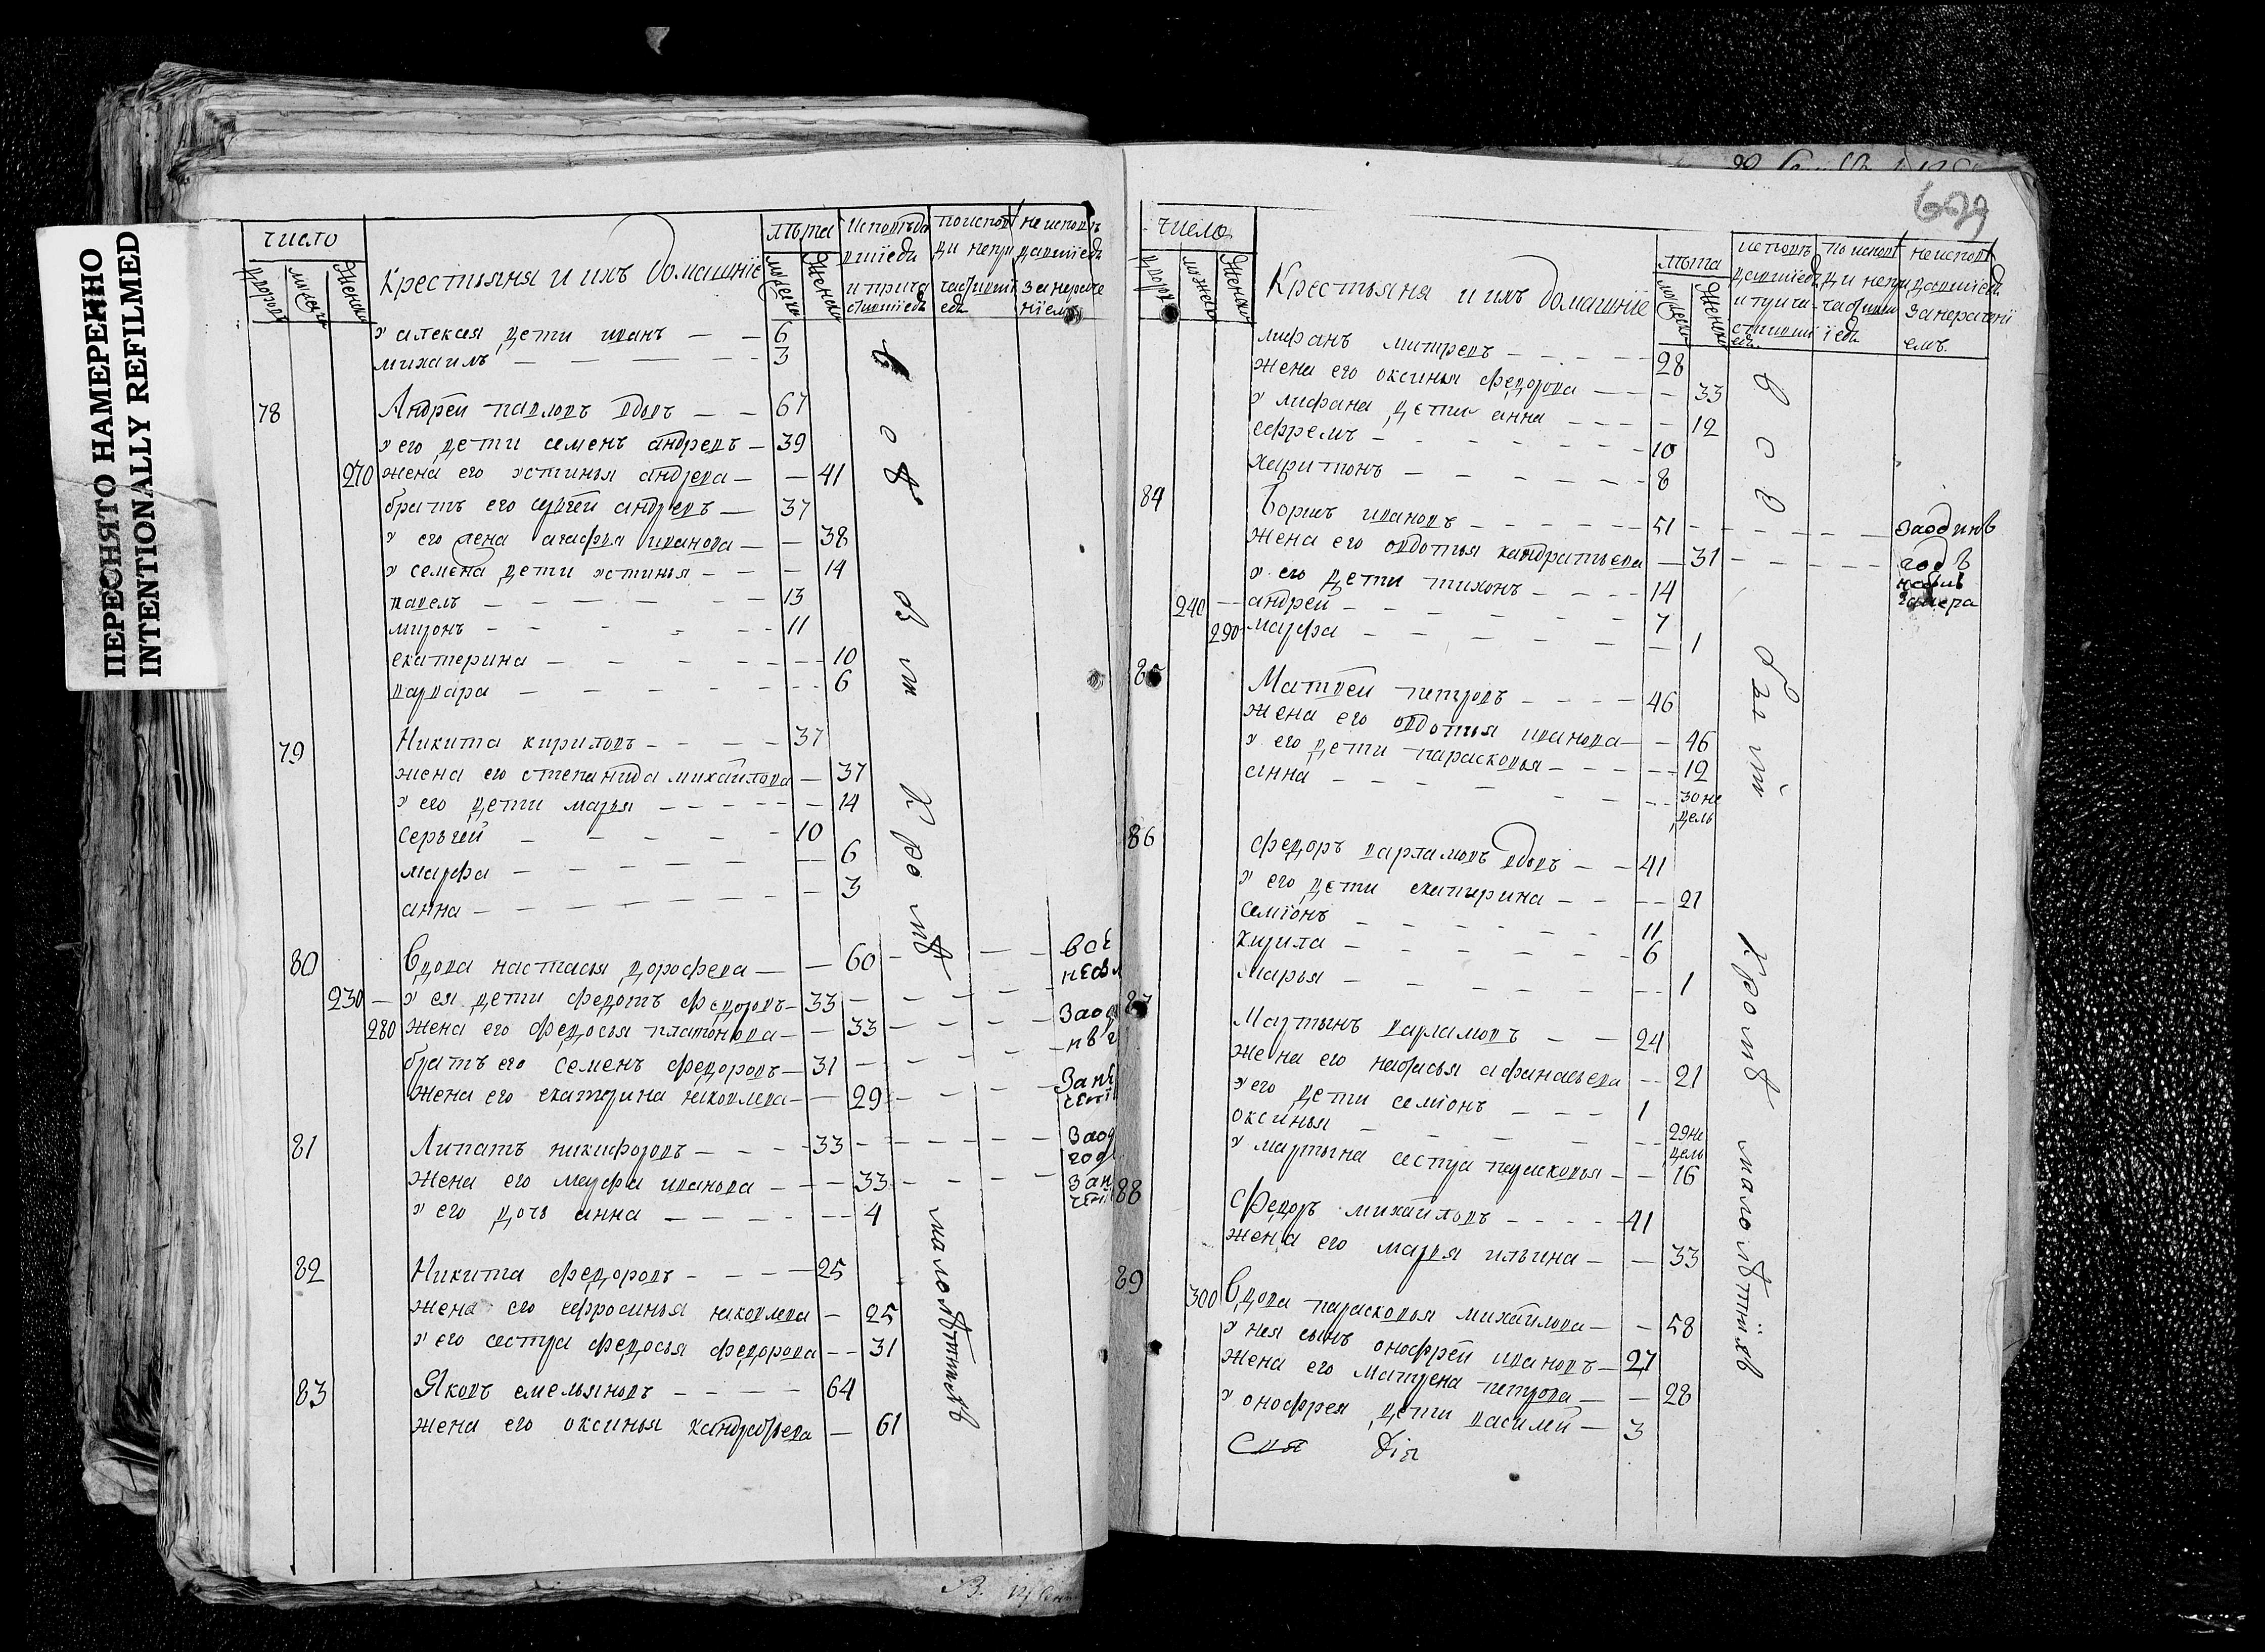 ПЕРЕСНЯТО НАМЕРЕННО
INTENTIONALLY REFILMED
число
дворовъ
мужеска
Женска
Крестьяня и ихъ домашнїе
лѣта
мужеска
Женска
Исповѣда
вшїеся
и прича
стившїеся
по испов
ди непри
част
еся
не исповѣ
давшїеся
за нераче
нїемъ
у алексея дети иванъ — — 6
михаилъ — — — — — 3
78 Андрей павловъ вдовъ — — 67
у его дети семенъ андревъ — 39
270 жена его устинья андрева — — 41
братъ его сергей андревъ — 37
у его жена агафья иванова — — 38
у семена дети устинья — — — 14
павелъ — — — — — 13
миронъ — — — — — 11
екатерина — — — — — 10
варвара — — — — — 6
79 Никита кириловъ — — — — 37
жена его степанида михайлова — 37
у его дети марья — — — — — 14
серьгей — — — — — 10
марфа — — — — — 6
анна — — — — — 3
80 Вдова настасья дорофева — — 60
230 — у ея дети федотъ федоровъ — 33
280 жена его федосья платонова — — 33
братъ его семенъ федоровъ — 31
жена его екатерина яковлева — — 29
81 Липатъ никифоровъ — — — 33
жена его марфа иванова — — — 33
у его дочь анна — — — — — 4
82 Никита федоровъ — — — — 25
жена его ефросинья яковлева — 25
у его сестра федосья федорова — — 31
83 Яковъ емельяновъ — — — — 64
жена его оксинья кандратьева — 61
всѣ
кромѣ
малолѣтныхъ
679
число
дворовъ
мужеска
Женска
Крестьяня и ихъ домашнїе
лѣта
мужеска
Женска
исповѣ
давшїеся
и прича
стившї
еся
по испов
ди непри
част
їеся
не испов
давшїеся
за нераченї
емъ.
лифанъ митревъ — — — — 28
жена его оксинья федорова — — — 33
у лифана дети анна — — — — 12
ефремъ — — — — — 10
харитонъ — — — — — 8
84 Борисъ ивановъ — — — — — 51 — — — — — за один
жена его овдотья кандратьева — 31 — — — — годъ
у его дети тихонъ — — — — 14
240 — андрей — — — — — 7
290 — марфа — — — — — 1
85 Матвей петровъ — — — — 46
жена его овдотья иванова — — 46
у его дети парасковья — — — — 12
анна — — — — — 30 не
дель
86 федоръ варламовъ вдовъ — — 41
у его дети екатерина — — — 21
семїонъ — — — — — 11
кирила — — — — — 6
марья — — — — — 1
87 Мартынъ варламовъ — — 24
жена его настасья афанасьева — — 21
у его дети семїонъ — — — 1
оксинья — — — — — 29 не
дель
у мартына сестра парасковья — — 16
88 Федоръ михайловъ — — — — 41
жена его марья ильина — — 33
89 300 Вдова парасковья михайлова — — 58
у нея сынъ онофрей ивановъ — 27
жена его матрена петрова — — 28
у онофрея дети василей — 3
всѣ
кромѣ
малолѣтныхъ